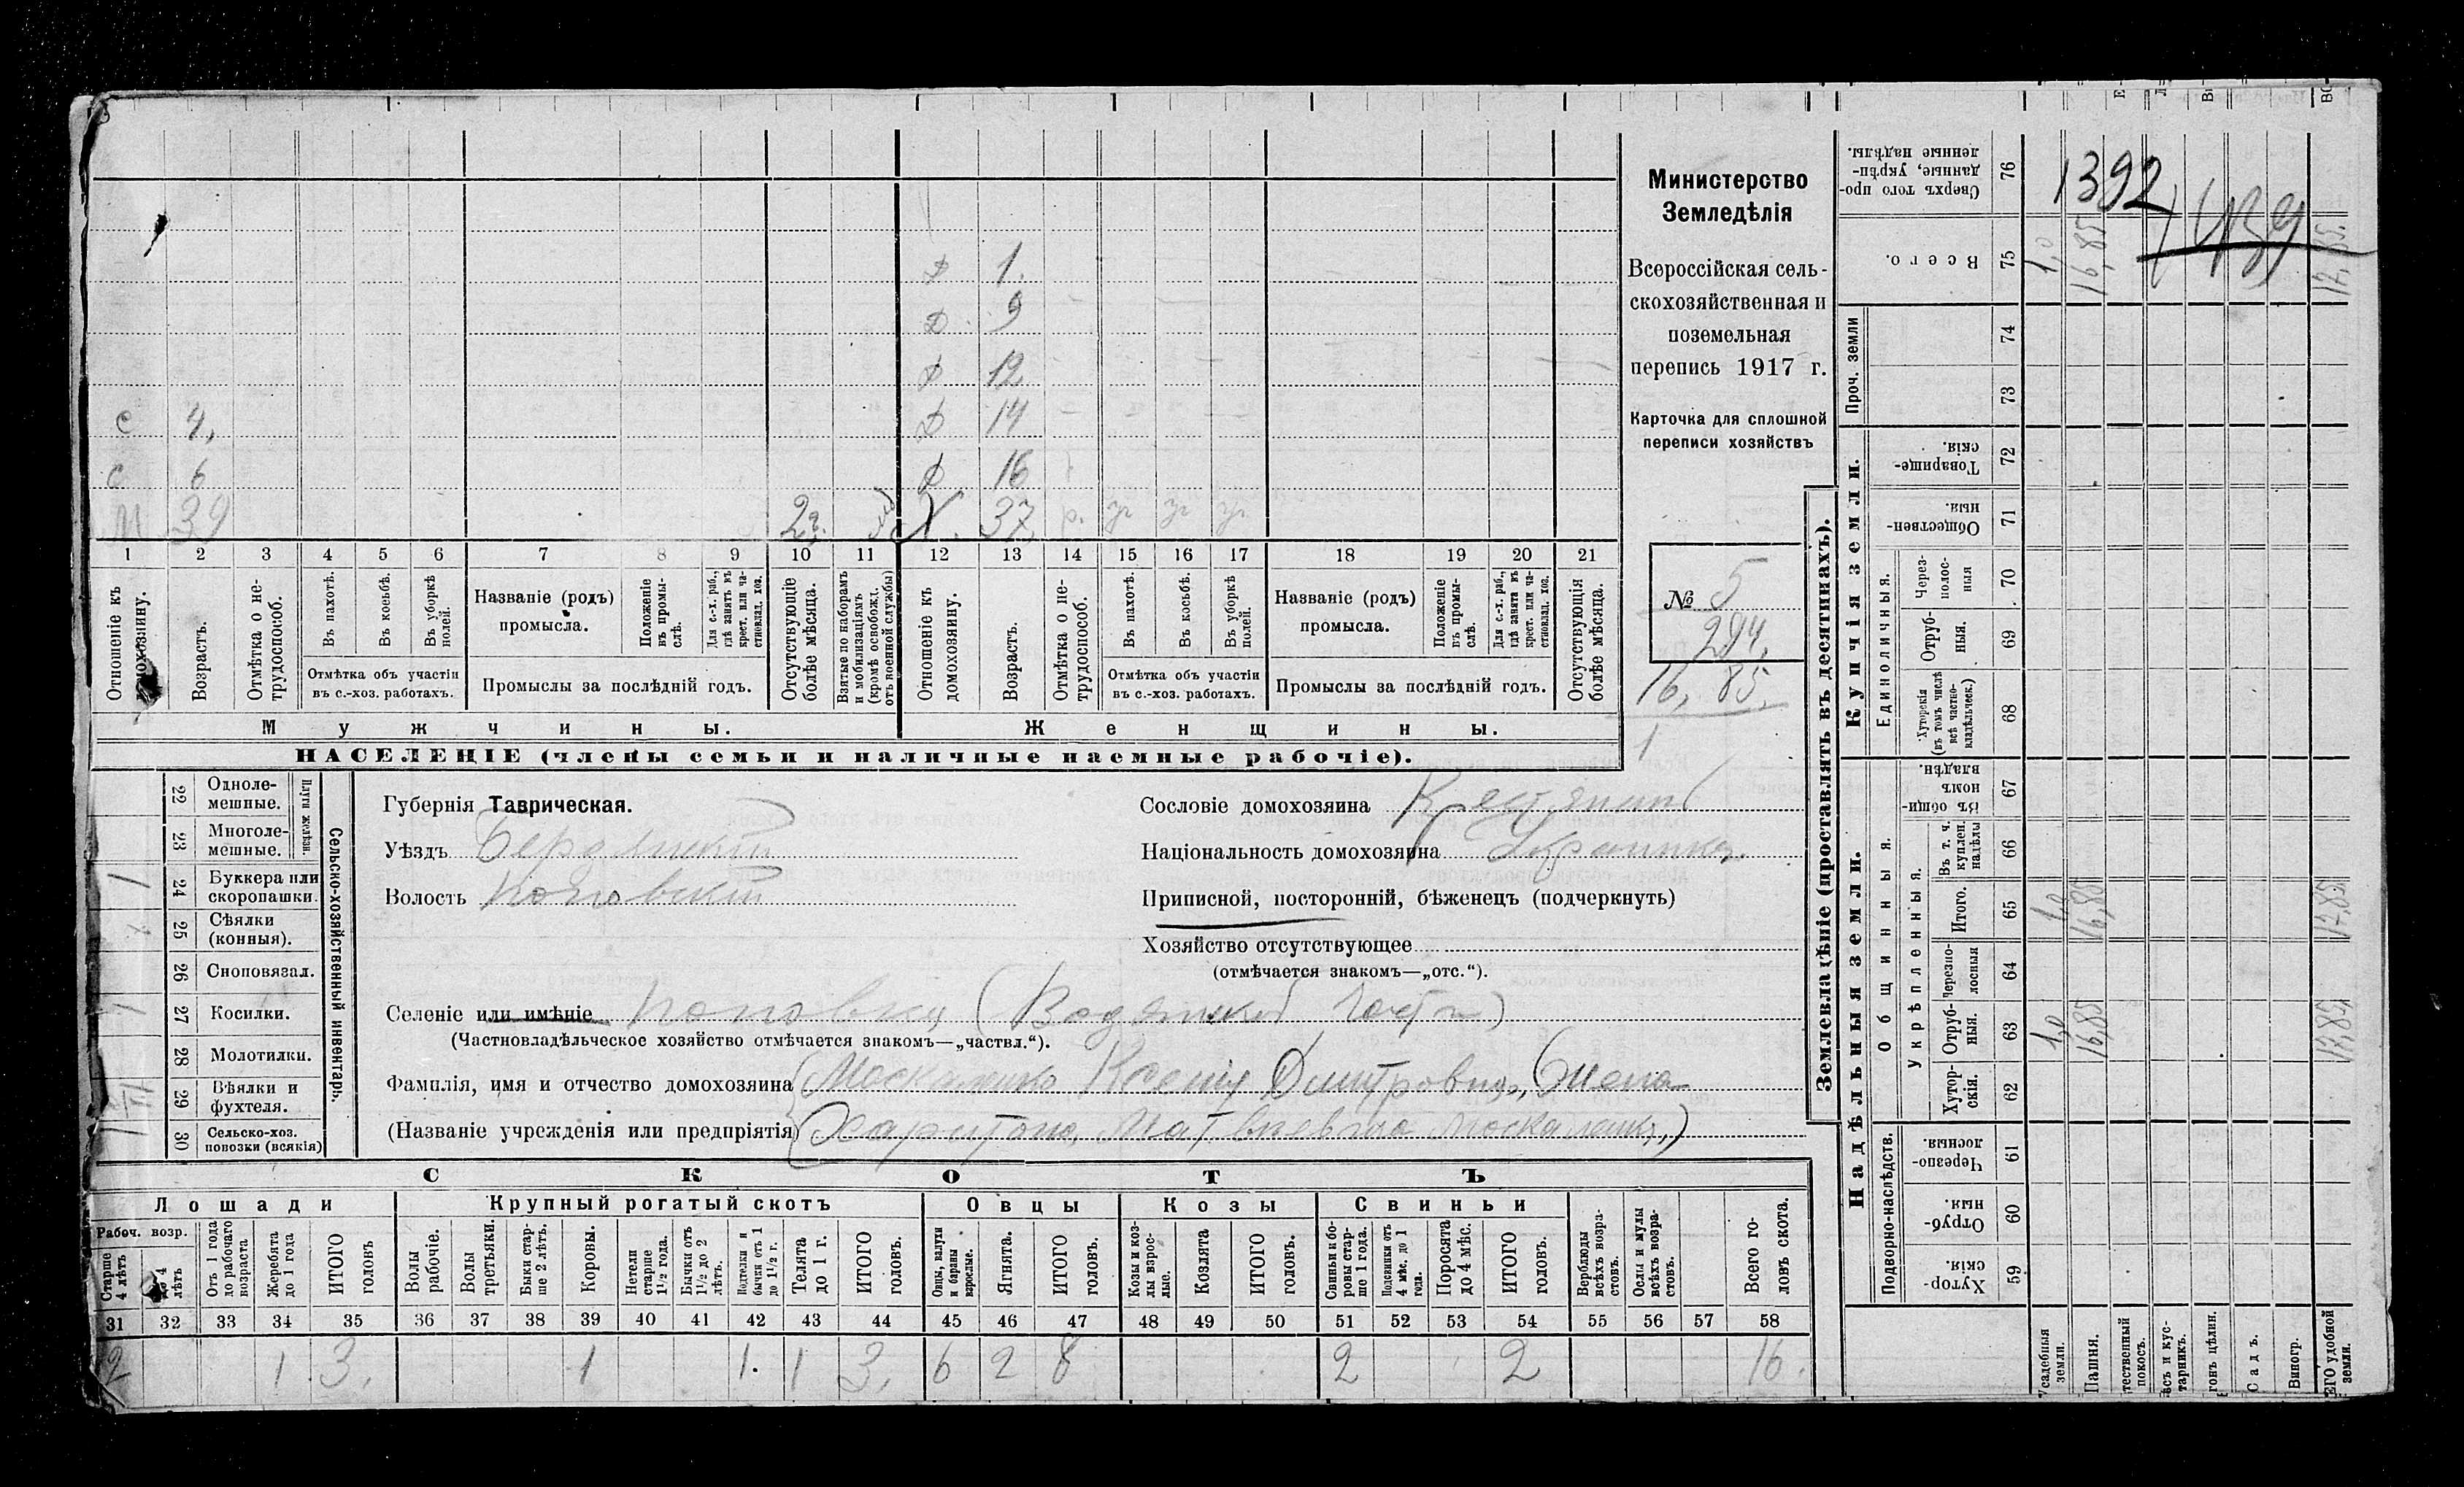 Министерство
Земледѣлія
Всероссійская сель-
скохозяйственная и
поземельная
перепись 1917 г.
Карточка для сплошной
переписи хозяйствъ
№ 5
294.
16, 85.
1
Д 1.
Д 9
Д 12
С 4, Д 14
С 6 Д 16
М 39 2 г. Х. 37 р.
1 2 3 4 5 6 7 8 9 10 11 12 13 14 15 16 17 18 19 20 21
Отношеніе къ домохозяину.
Возрастъ.
Отмѣтка о не-трудоспособ.
Въ пахотѣ.
Въ косьбѣ.
Въ уборкѣ полей.
Отмѣтка объ участіи въ с.-хоз. работахъ.
Названіе (родъ) промысла.
Положеніе въ промы-слѣ.
Для с.-х. раб., гдѣ занятъ въ крест. или ча-стновлад. хоз.
Промыслы за послѣдній годъ.
Отсутствующіе болѣе мѣсяца.
Взятые по наборамъ и мобилизаціямъ (кромѣ освобожд. отъ военной службы)
Отношеніе къ домохозяину.
Возрастъ.
Отмѣтка о не-трудоспособ.
Въ пахотѣ.
Въ косьбѣ.
Въ уборкѣ полей.
Отмѣтка объ участіи въ с.-хоз. работахъ.
Названіе (родъ) промысла.
Положеніе въ промы-слѣ.
Для с.-х. раб., гдѣ занята въ крест. или ча-стновлад. хоз.
Промыслы за послѣдній годъ.
Отсутствующія болѣе мѣсяца.
Мужчины. Женщины.
НАСЕЛЕНІЕ (члены семьи и наличные наемные рабочіе).
Сельско-хозяйственный инвентарь.
Плуги желѣзн.
22 Одноле-мешные.
23 Многоле-мешные.
1 24 Буккера или скоропашки.
25 Сѣялки (конныя).
26 Сноповязал.
1 27 Косилки.
28 Молотилки.
29 Вѣялки и фухтеля.
30 Сельско-хоз. повозки (всякія)
Губернія Таврическая.
Уѣздъ Бердянскій
Волость Поповскій
Сословіе домохозяина Крестьянинъ
Національность домохозяина Украинка.
Приписной, посторонній, бѣженецъ (подчеркнуть)
Хозяйство отсутствующее
(отмѣчается знакомъ—„отс.“).
Селеніе или имѣніе Поповка (
(Частновладѣльческое хозяйство отмѣчается знакомъ—„частвл.“).
Фамилія, имя и отчество домохозяина Москаленко Ксенія Дмитровна,
(Названіе учрежденія или предпріятія) Харитона Матвѣевича Москаленко)
СКОТЪ
Лошади Крупный рогатый скотъ Овцы Козы Свиньи
Рабоч. возр.
Старше 4 лѣтъ
до 4 лѣтъ
Отъ 1 года до рабочаго возраста
Жеребята до 1 года
ИТОГО головъ
Волы рабочіе.
Волы третьяки.
Быки стар-ше 2 лѣтъ.
Коровы.
Нетели старше 1½ года.
Бычки отъ 1½ до 2 лѣтъ.
Подтелки и бычки отъ 1 до 1½ г.
Телята до 1 г.
ИТОГО головъ.
Овцы, валухи и бараны взрослые.
Ягнята.
ИТОГО головъ.
Козы и коз-лы взрос-лые.
Козлята
ИТОГО головъ.
Свиньи и бо-ровы стар-ше 1 года.
Подсвинки отъ 4 мѣс. до 1 года.
Поросята до 4 мѣс.
ИТОГО головъ.
Верблюды всѣхъ возра-стовъ.
Ослы и мулы всѣхъ возра-стовъ.
Всего го-ловъ скота.
31 32 33 34 35 36 37 38 39 40 41 42 43 44 45 46 47 48 49 50 51 52 53 54 55 56 57 58
2 1 3. 1 1. 1 3. 6 2 8 2 2 16.
Землевладѣніе (проставлять въ десятинахъ).
Купчія земли.
Надѣльныя земли.
1392
76 Сверхъ того про-данные, укрѣп-ленные надѣлы.
75 Всего. 1,0 16,85
Проч. земли
74
73
72 Товарище-скія.
71 Обществен-ныя.
Единоличныя.
70 Через-полос-ныя
69 Отруб-ныя.
68 Хуторскія (въ томъ числѣ всѣ частно-владѣльческ.)
Общинныя.
67 Въ общин-номъ владѣн.
Укрѣпленныя.
66 Въ т. ч. куплен. надѣлы
65 Итого. 1,0 16,85 17,85
64 Черезпо-лосныя
63 Отруб-ныя. 1,0 16,85 17,85
62 Хутор-скія.
Подворно-наслѣдств.
61 Черезпо-лосныя.
60 Отруб-ныя.
59 Хутор-скія.
Усадебныя земли.
Пашня.
тественный покосъ.
ѣсъ и кус-тарникъ.
гонъ цѣлин.
Садъ.
Виногр.
ЕГО удобной земли.